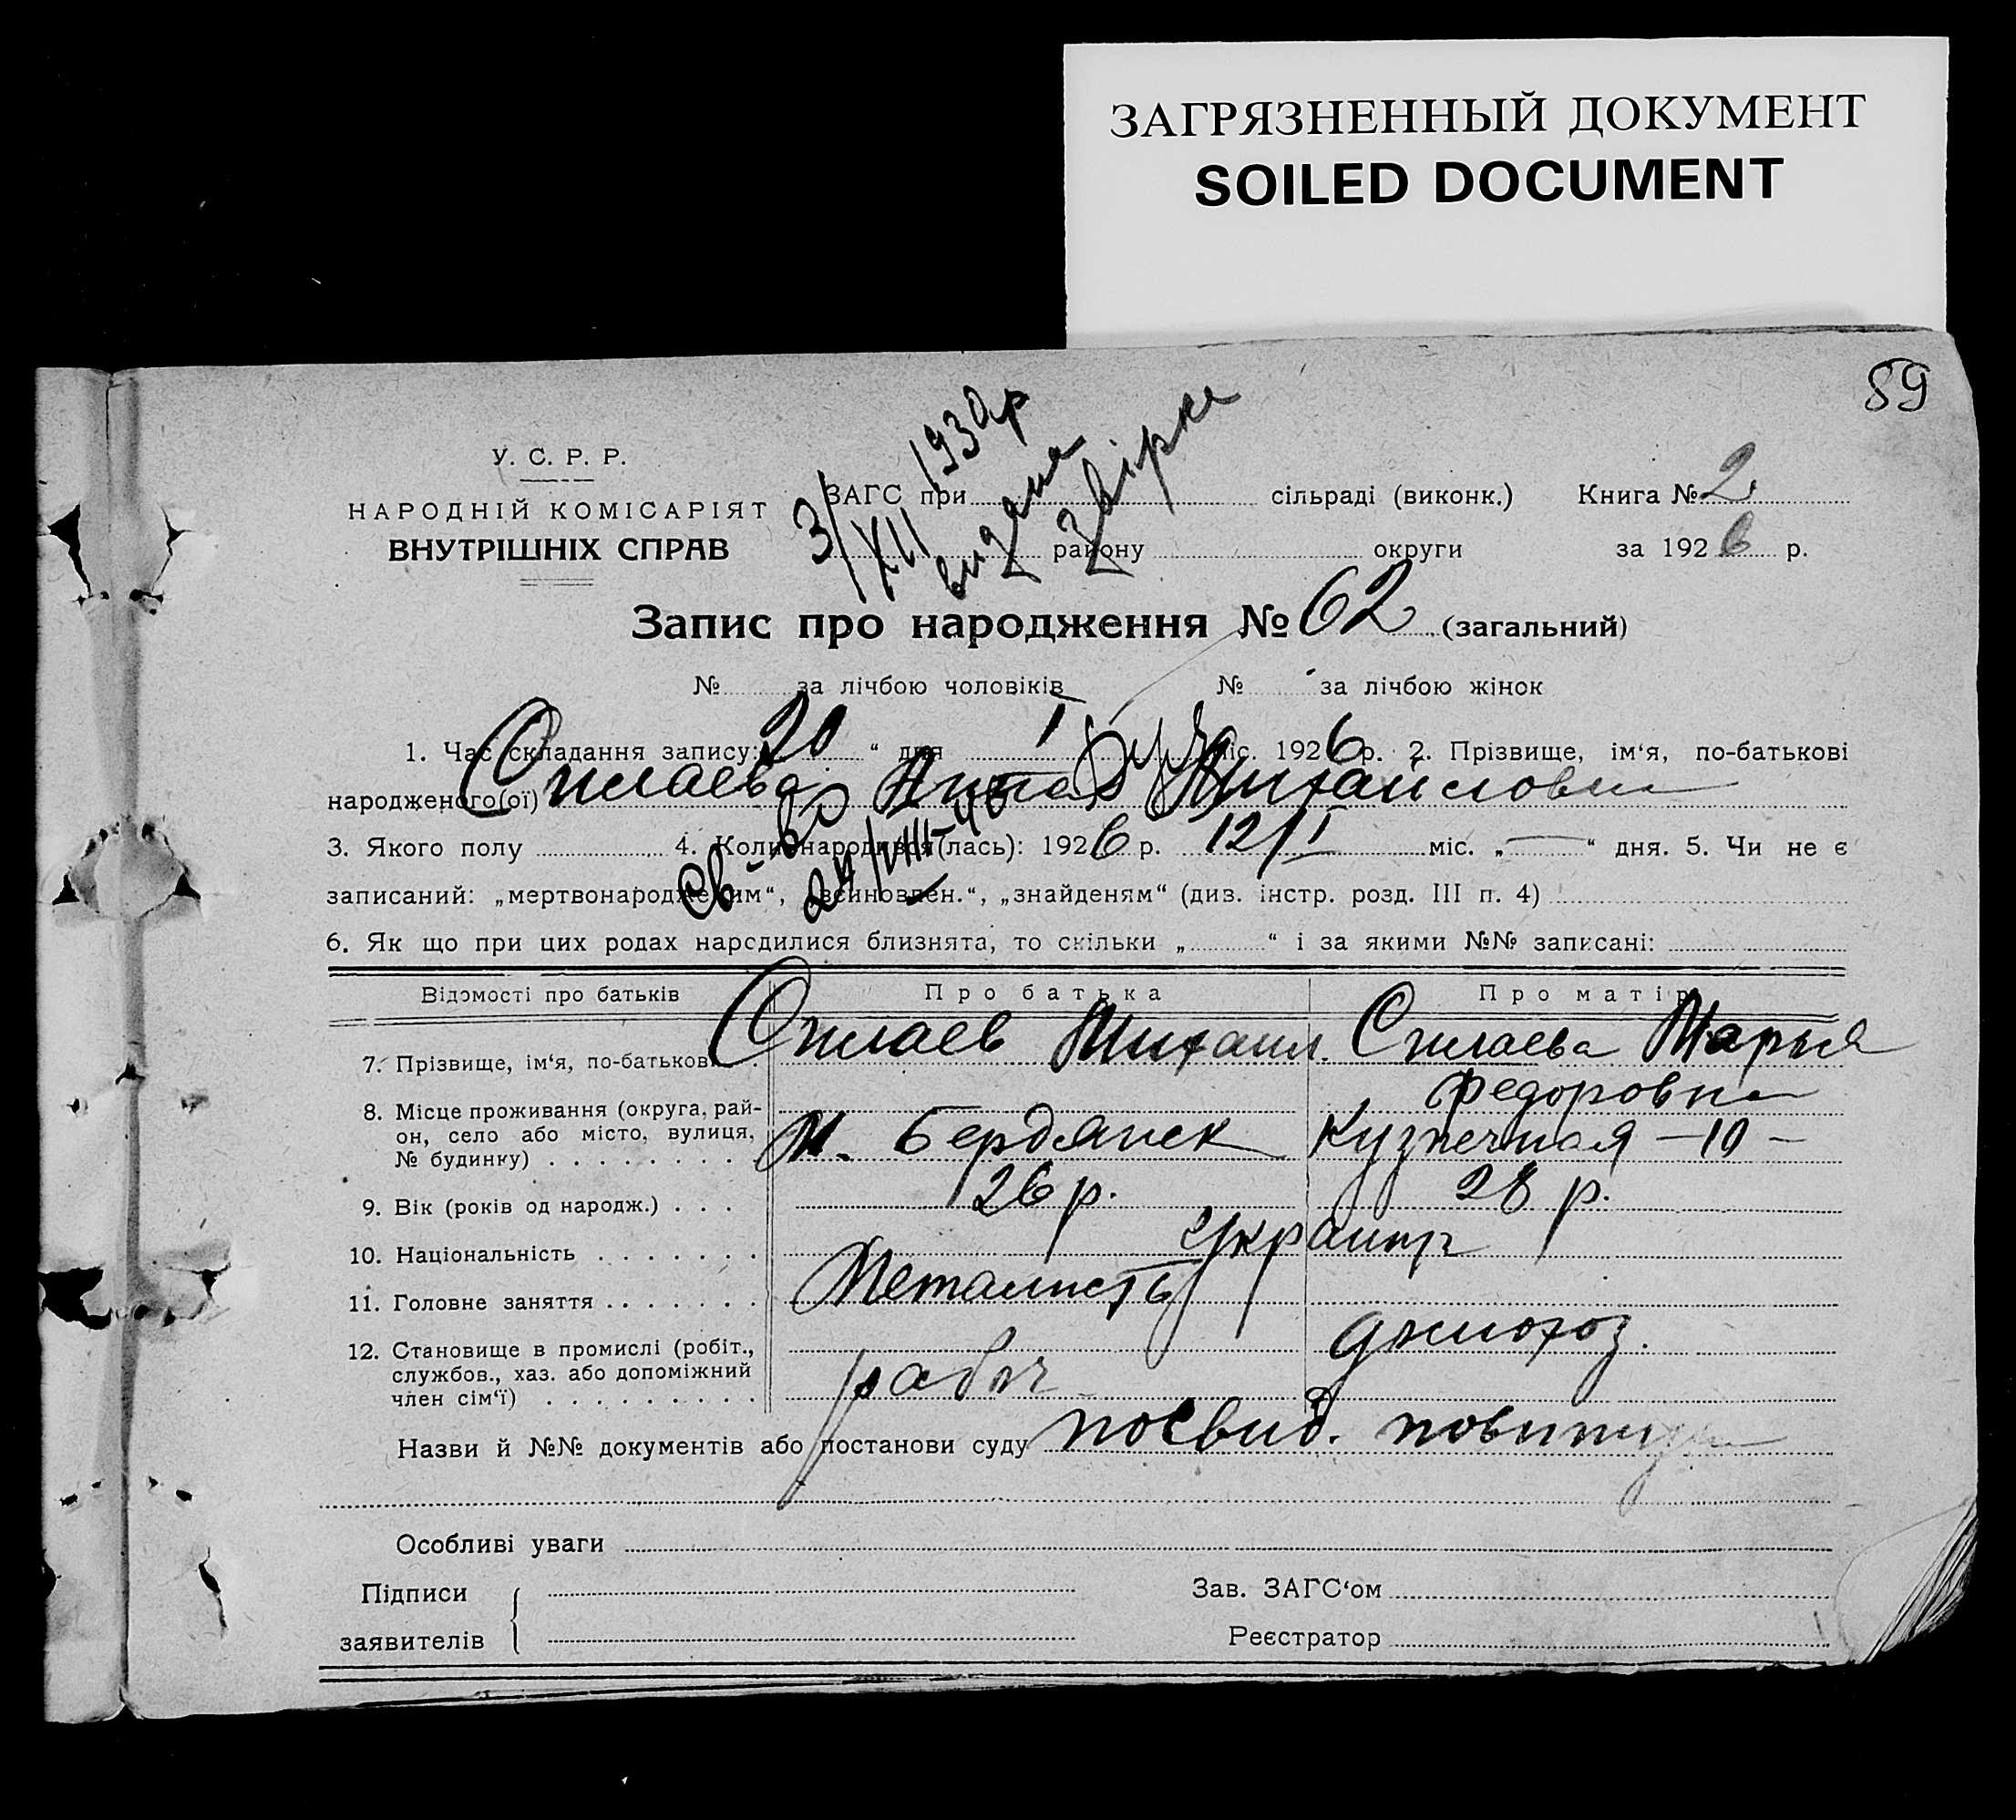 ЗАГРЯЗНЕННЫЙ ДОКУМЕНТ
SOILED DOCUMENT
89
У. С. Р. Р.
НАРОДНІЙ КОМІСАРІЯТ
ВНУТРІШНІХ СПРАВ
3/XII 1930р
видана
звірка
ЗАГС при сільраді (виконк.) Книга № 2
району округи за 1926 р.
Запис про народження № 62 (загальний)
№ за лічбою чоловіків № за лічбою жінок
1. Час складання запису: 20 “ дня I міс. 1926 р. 2. Прізвище, ім‘я, по-батькові
народженого(ої) Силаева Михайловна
3. Якого полу 4. Коли народився(лась): 1926 р. 12/I міс. „ — “ дня. 5. Чи не є
св-во
24/VIII-46
записаний: „мертвонародженим“, „всиновлен.“, „знайденям“ (див. інстр. розд. III п. 4)
6. Як що при цих родах народилися близнята, то скільки „ “ і за якими №№ записані:
Відомості про батьків Про батька Про матір
7. Прізвище, ім‘я, по-батькові . Силаев Михаил. Силаева Марья
Федоровна
8. Місце проживання (округа, рай-
он, село або місто, вулиця, М. Бердянск Кузнечная —10—
№ будинку) . . . . . . . . .
9. Вік (років од народж.) . . . 26 р. 28 р.
10. Національність . . . . . . . украинц
11. Головне заняття . . . . . . . Металистъ
12. Становище в промислі (робіт., домохоз.
службов., хаз. або допоміжний рабоч
член сім‘ї) . . . . . . . . .
Назви й №№ документів або постанови суду посвид. повитухи
Особливі уваги
Підписи Зав. ЗАГС‘ом
заявителів Реєстратор